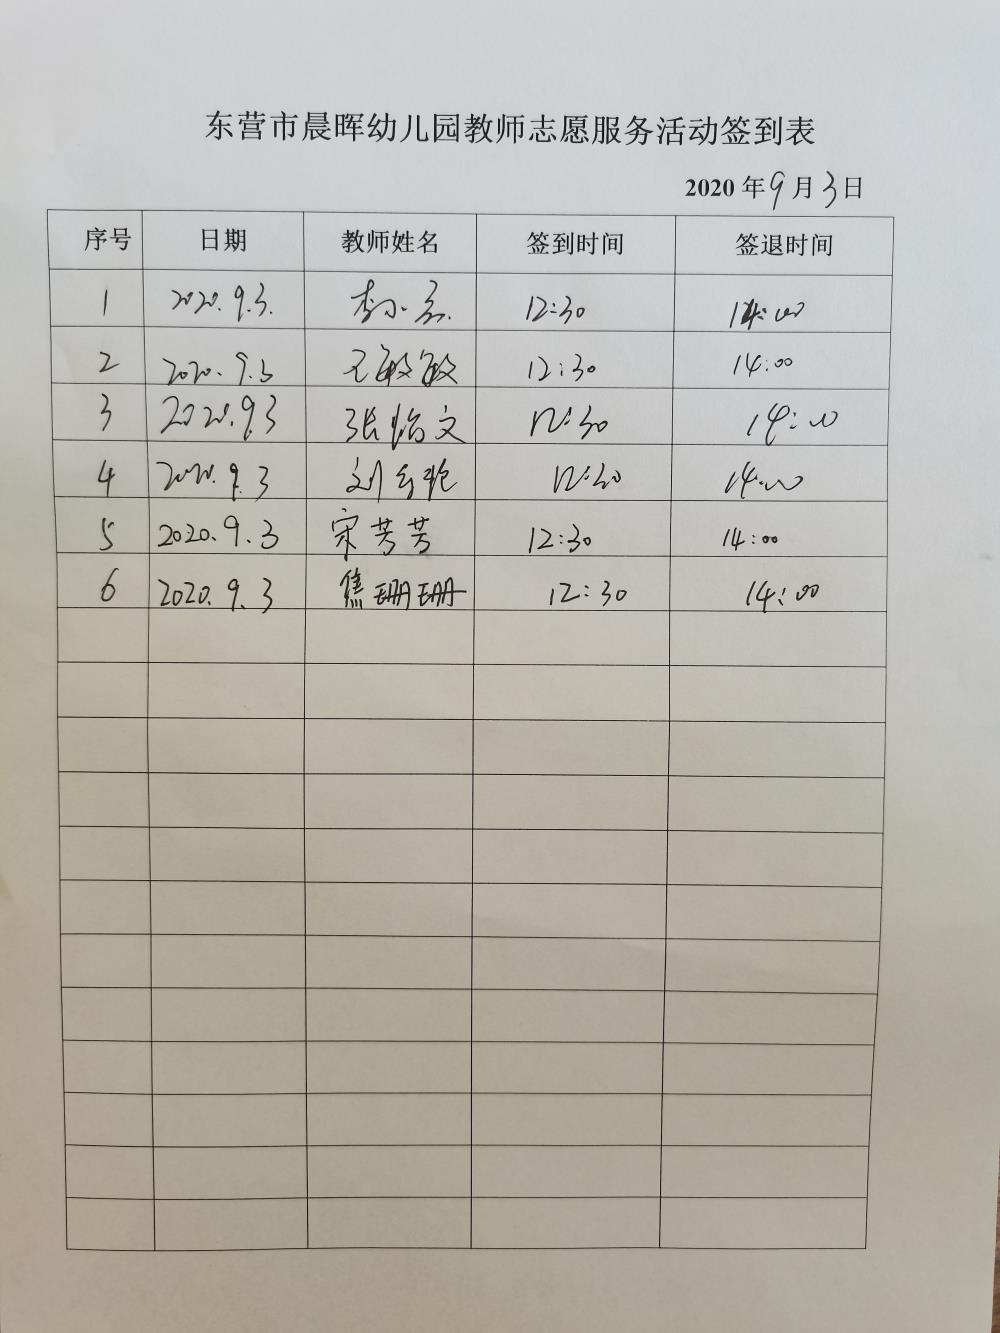 东营市晨晖幼儿园教师志愿服务活动签到表
2020 年 9 月 3 日
序号 日期 教师姓名 签到时间 签退时间
1 2020.9.3. 李小 12:30 14:00
2 2020.9.3 王敏敏 12:30 14:00
3 2020.9.3 张怡文 12:30 14:00
4 2020.9.3 刘 12:30 14:00
5 2020.9.3 宋芳芳 12:30 14:00
6 2020.9.3 焦珊珊 12:30 14:00